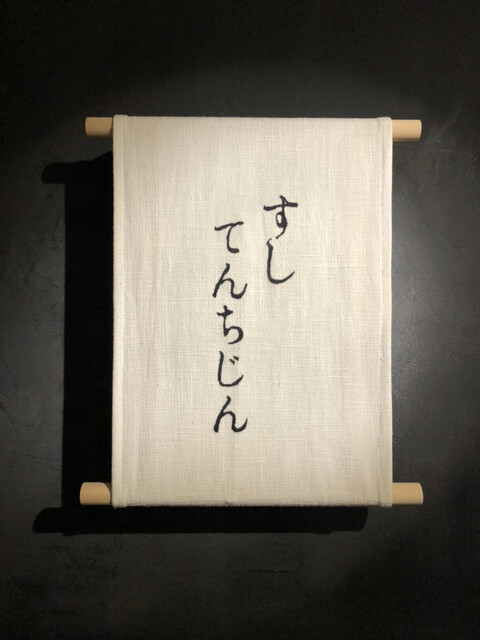 すし
てんちじん